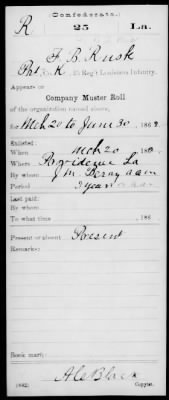 (Confederate.)
R 25 La.
F. B. Rusk
Pvt, Co. K, 25 Reg't Louisiana Infantry.
Appears on
Company Muster Roll
of the organization named above,
for Mch 20 to June 30, 1862.
Enlisted:
When Mch 20, 186
Where La
By whom J M
Period 3 years
Last paid:
By whom
To what time , 186 .
Present or absent Present
Remarks:
Book mark:
(642)
Black
Copyist.